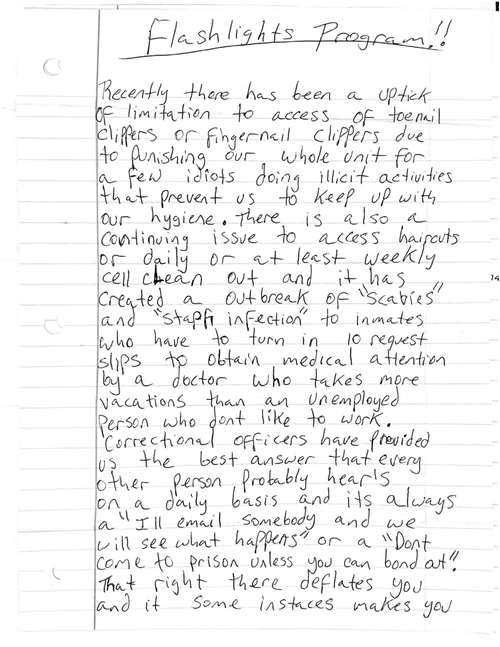 Flashlights Program!!
Recently there has been a uptick
of limitation to access of toenail
clippers or fingernail clippers due
to punishing our whole unit for
a few idiots doing illicit activities
that prevent us to keep up with
our hygiene. There is also a
continuing issue to access haircuts
or daily or at least weekly
cell clean out and it has
created a outbreak of "scabies"
and "staph infection" to inmates
who have to turn in 10 request
slips to obtain medical attention
by a doctor who takes more
vacations than an unemployed
person who dont like to work.
Correctional officers have provided
us the best answer that every
other person probably hear's
on a daily basis and its always
a "I'll email somebody and we
will see what happens" or a "Dont
come to prison unless you can bond out".
That right there deflates you
and it some instaces makes you